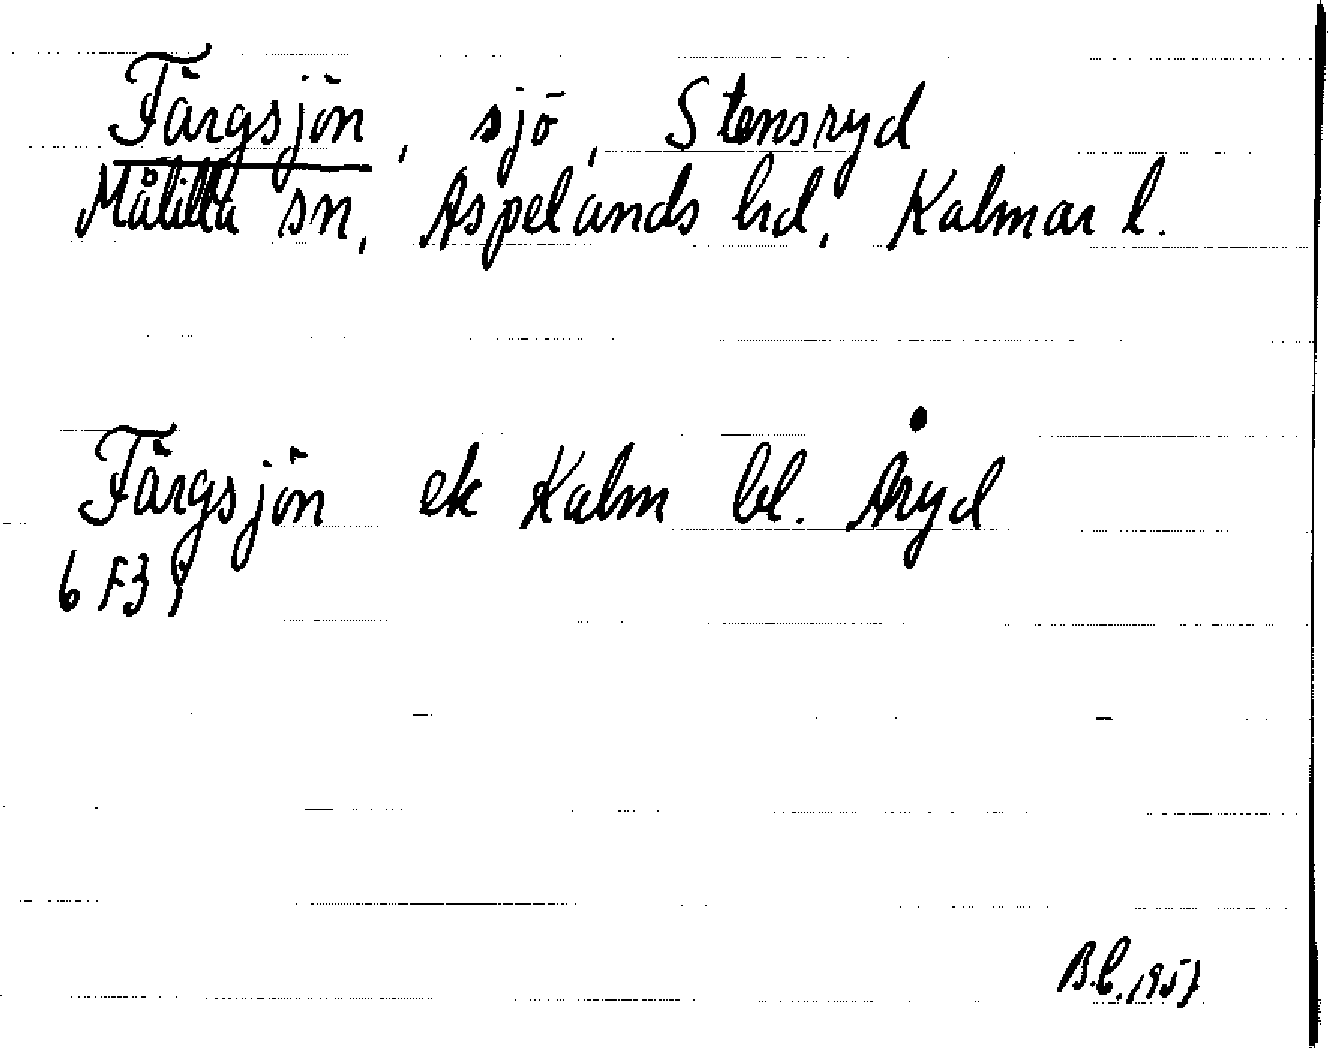 Färgsjön, sjö, Stensryd
Målilla sn, Aspelands hd, Kalmar l.
Färgsjön ek Kalm bl. Åryd
6 F3
B.L. 1957